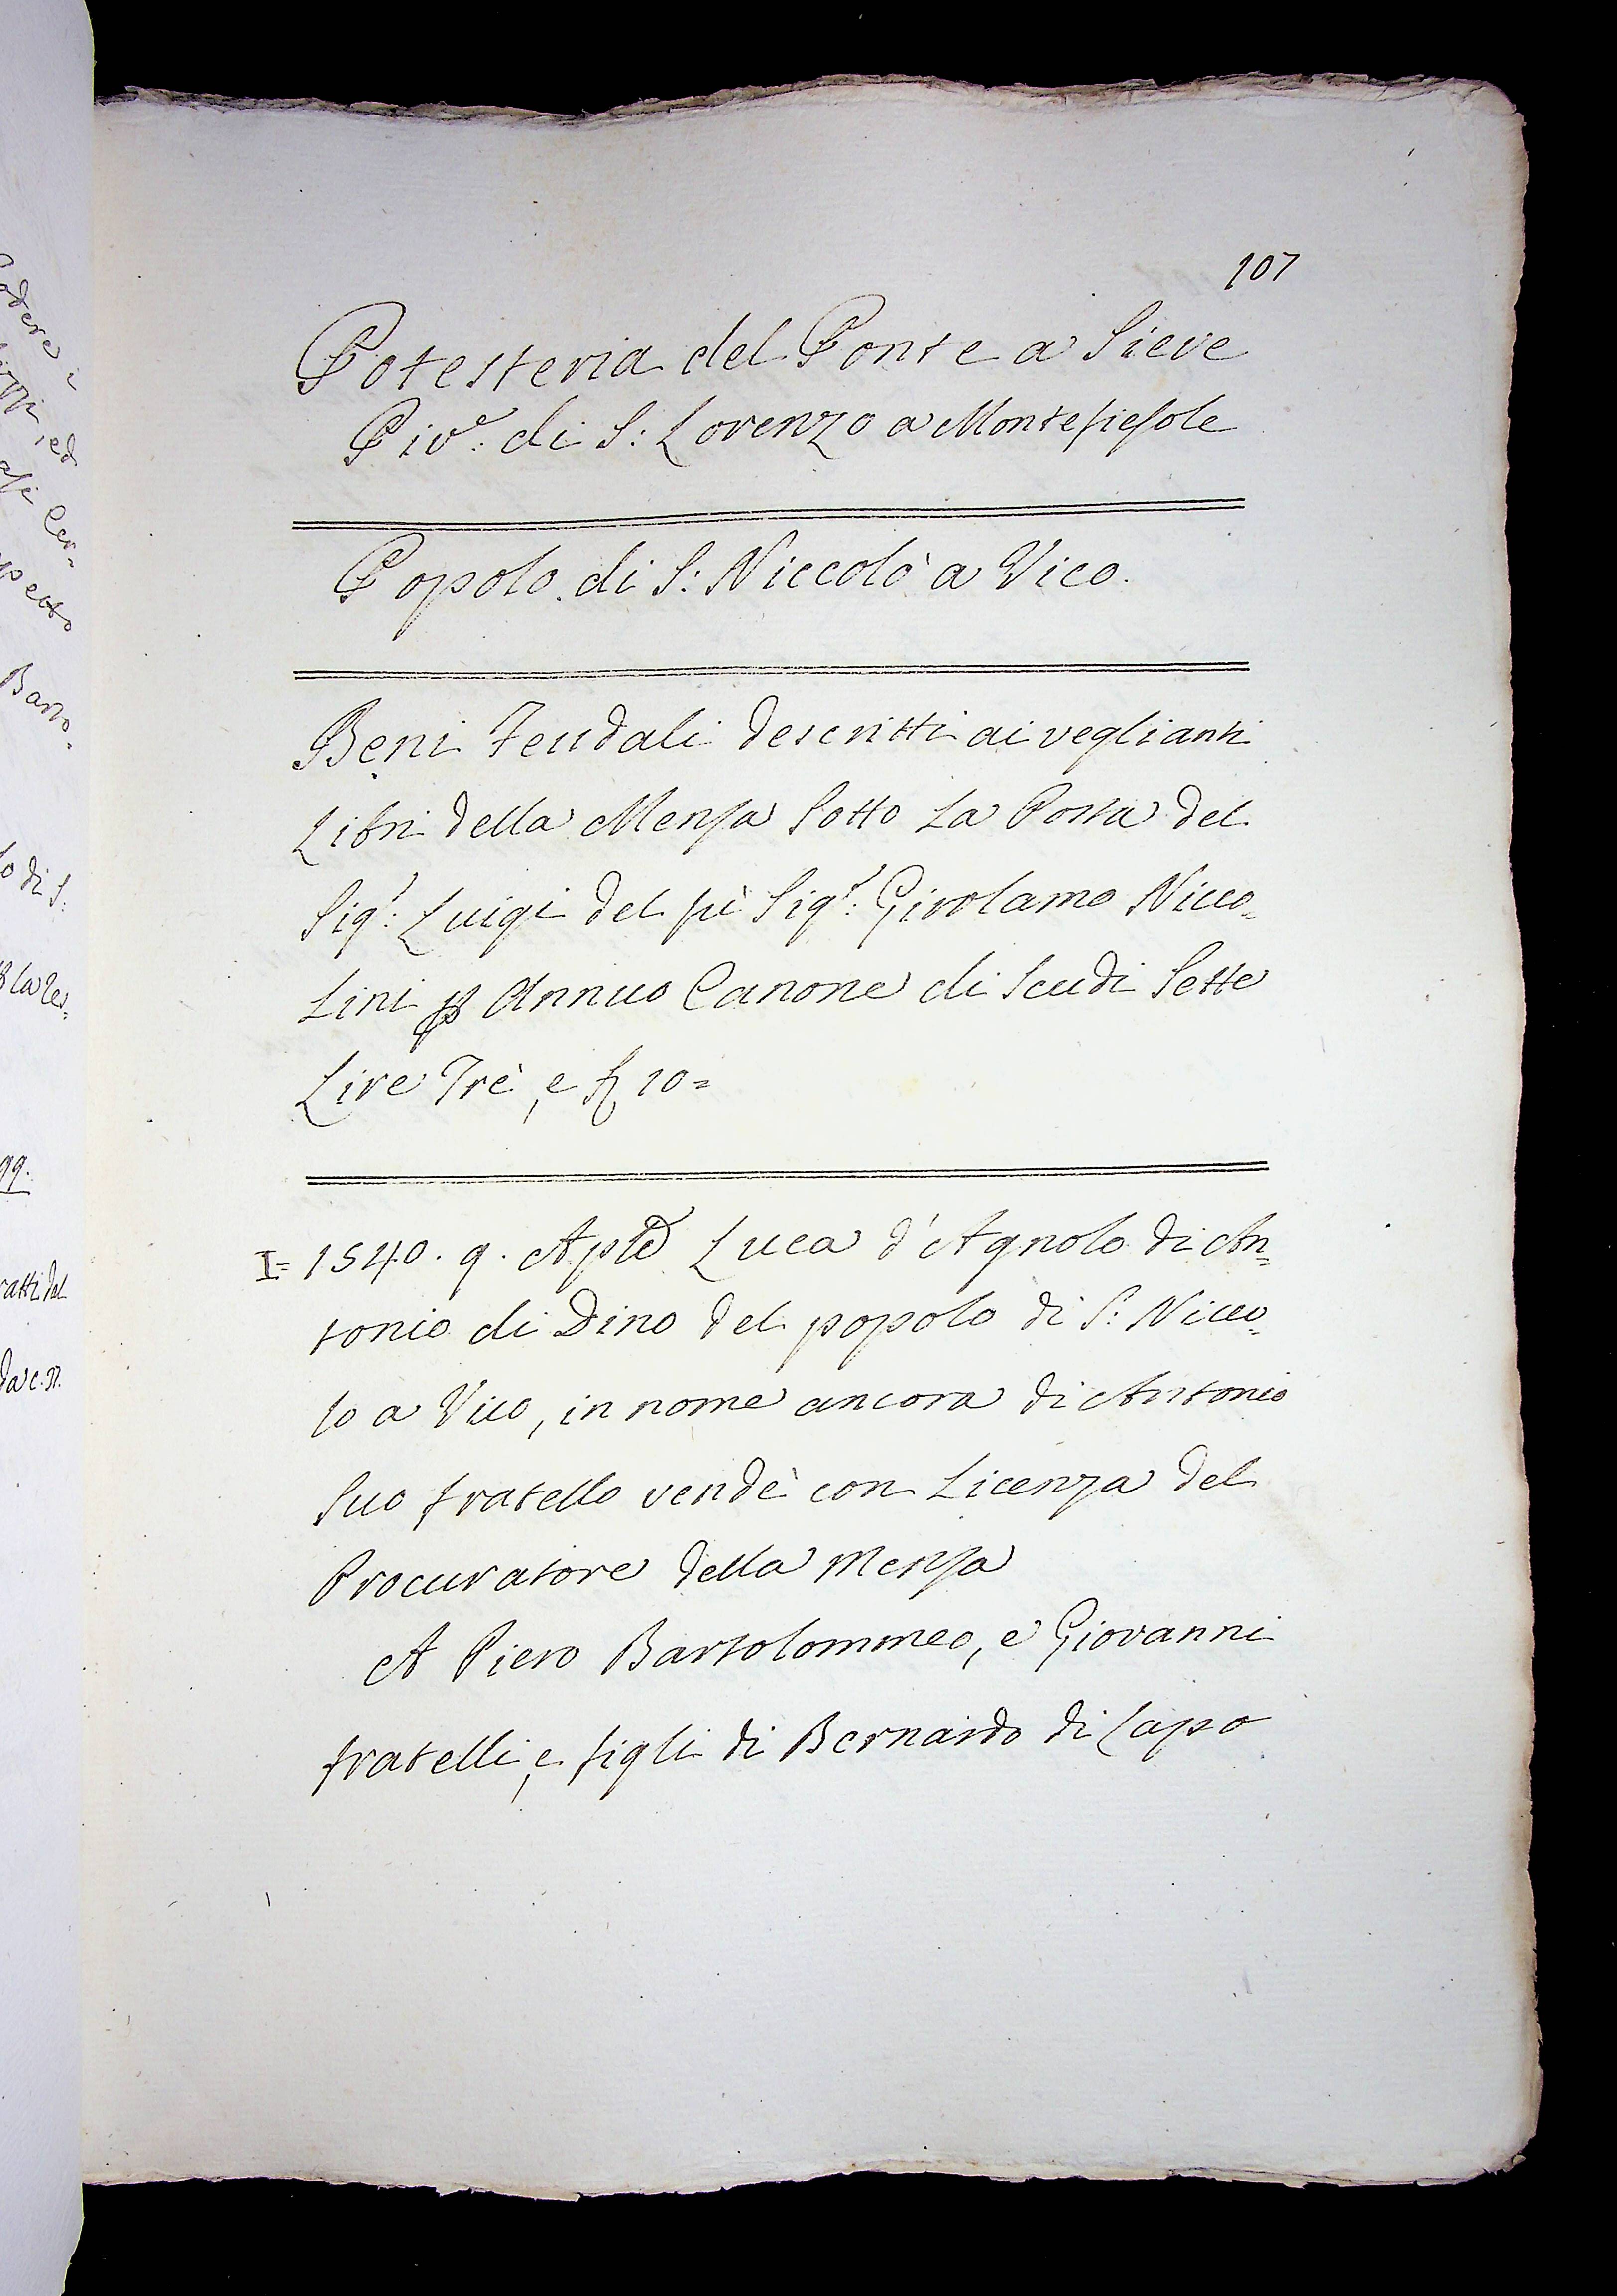 107
Potesteria del Ponte a Sieve
Piv.e di S: Lorenzo a Montefiesole
Popolo di S: Niccolò a Vico.
Beni Feudali descritti ai veglianti
Libri della Mensa Sotto La Posta del
Sig.r: Luigi del fù Sig.r: Girolamo Nicco=
Lini p Annuo Canone di Scudi Sette
Lire Trè, e 10=
I= 1540. 9. Aple Luca d'Agnolo di An=
tonio di Dino del popolo di S: Nicco=
lo a Vico, in nome ancora di Antonio
Suo fratello vendè con Licenza del
Procuratore della Mensa
A Piero Bartolommeo, e Giovanni
fratelli, e figli di Bernardo di Lapo
odere
, ed
Cer=
petto
Barto=
lo di S:
99.
ratti del
da c.